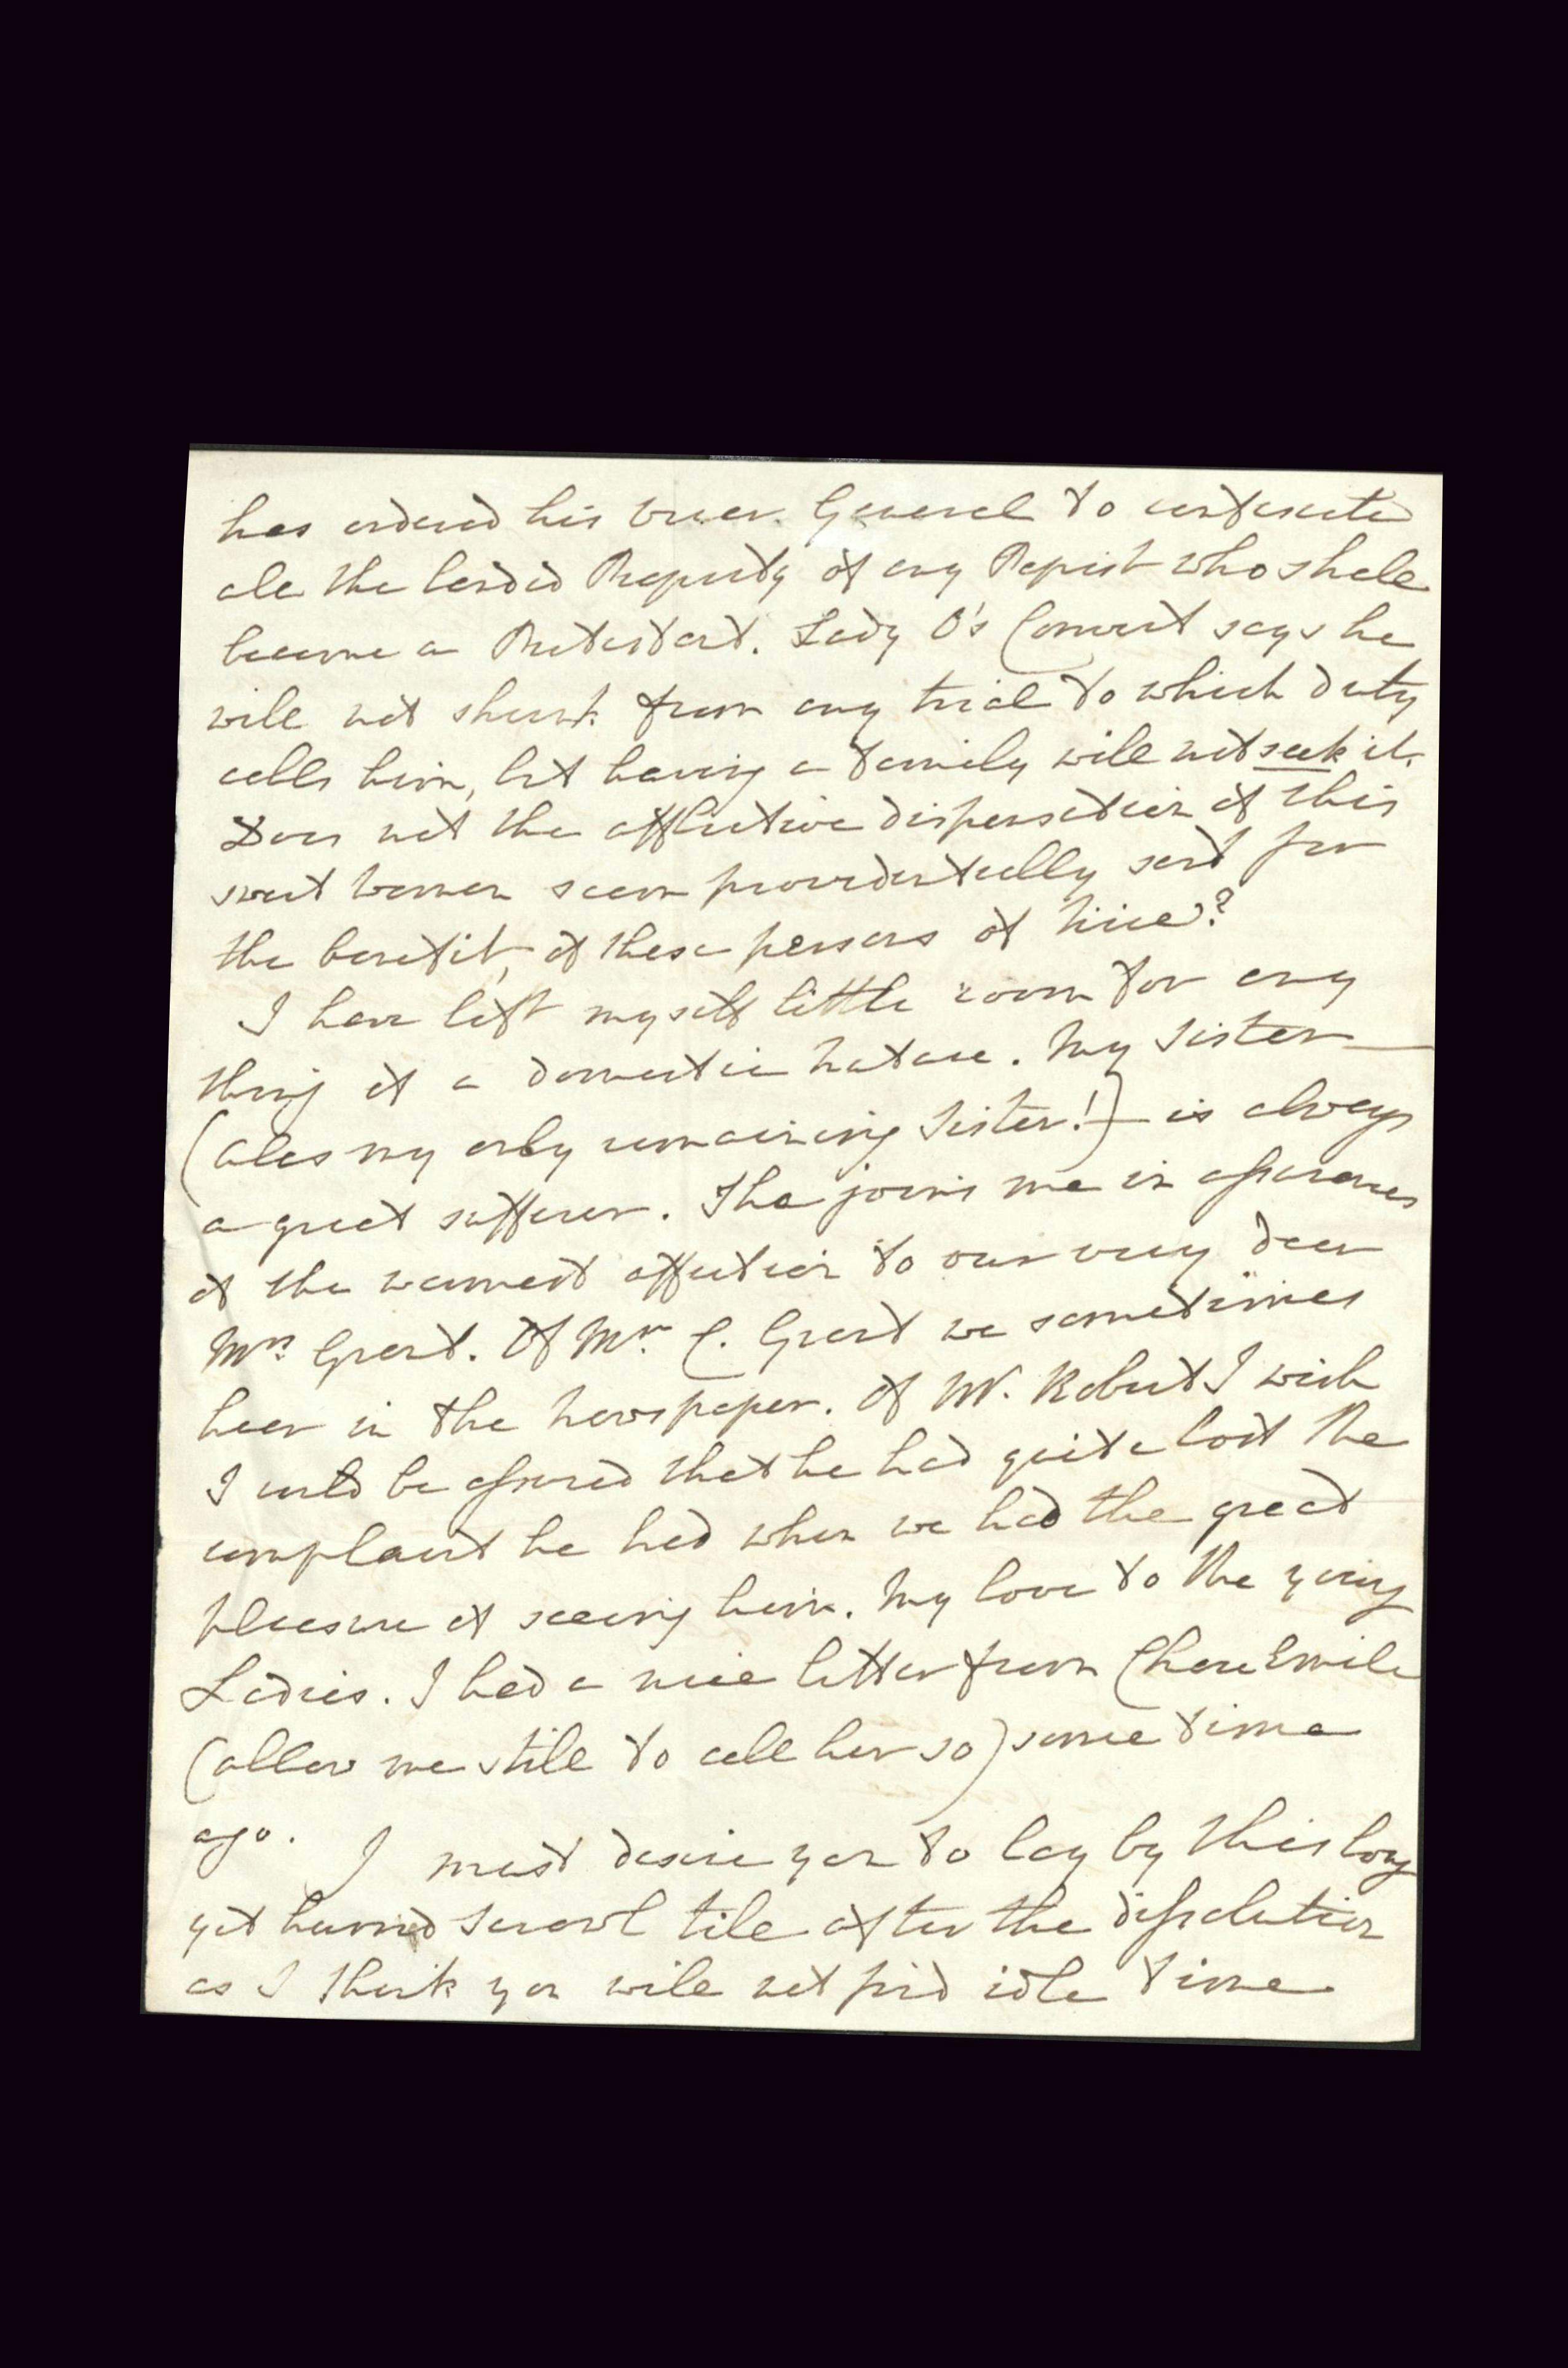 has ordered his Vicar General to confiscate
all the landed Property of any Papist who shall
become a Protestant. Lady O's Convert says he
will not shrink from any trial to which duty
calls him, but having a family will not seek it.
Does not the afflictive dispensation of this
sweet woman seem providentially sent for
the benefit, of these persons at Nice?
I have left myself little room for any
thing of a domestic nature. My Sister
(alas my only remaining Sister!) is always
a great sufferer. She joins me in assurances
of the warmest affection to our very dear
Mrs. Grant. Of Mr. C. Grant we sometimes
hear in the Newspaper. Of Mr. Robert I wish
I could be assured that he had quite lost the
complaint he had when we had the great
pleasure of seeing him. My love to the young
Ladies. I had a nice letter from Chere Emile
(allow me still to call her so) some time
ago.
I must desire you to lay by this long
yet hurried scrawl till after the dissolution
as I think you will not find idle time